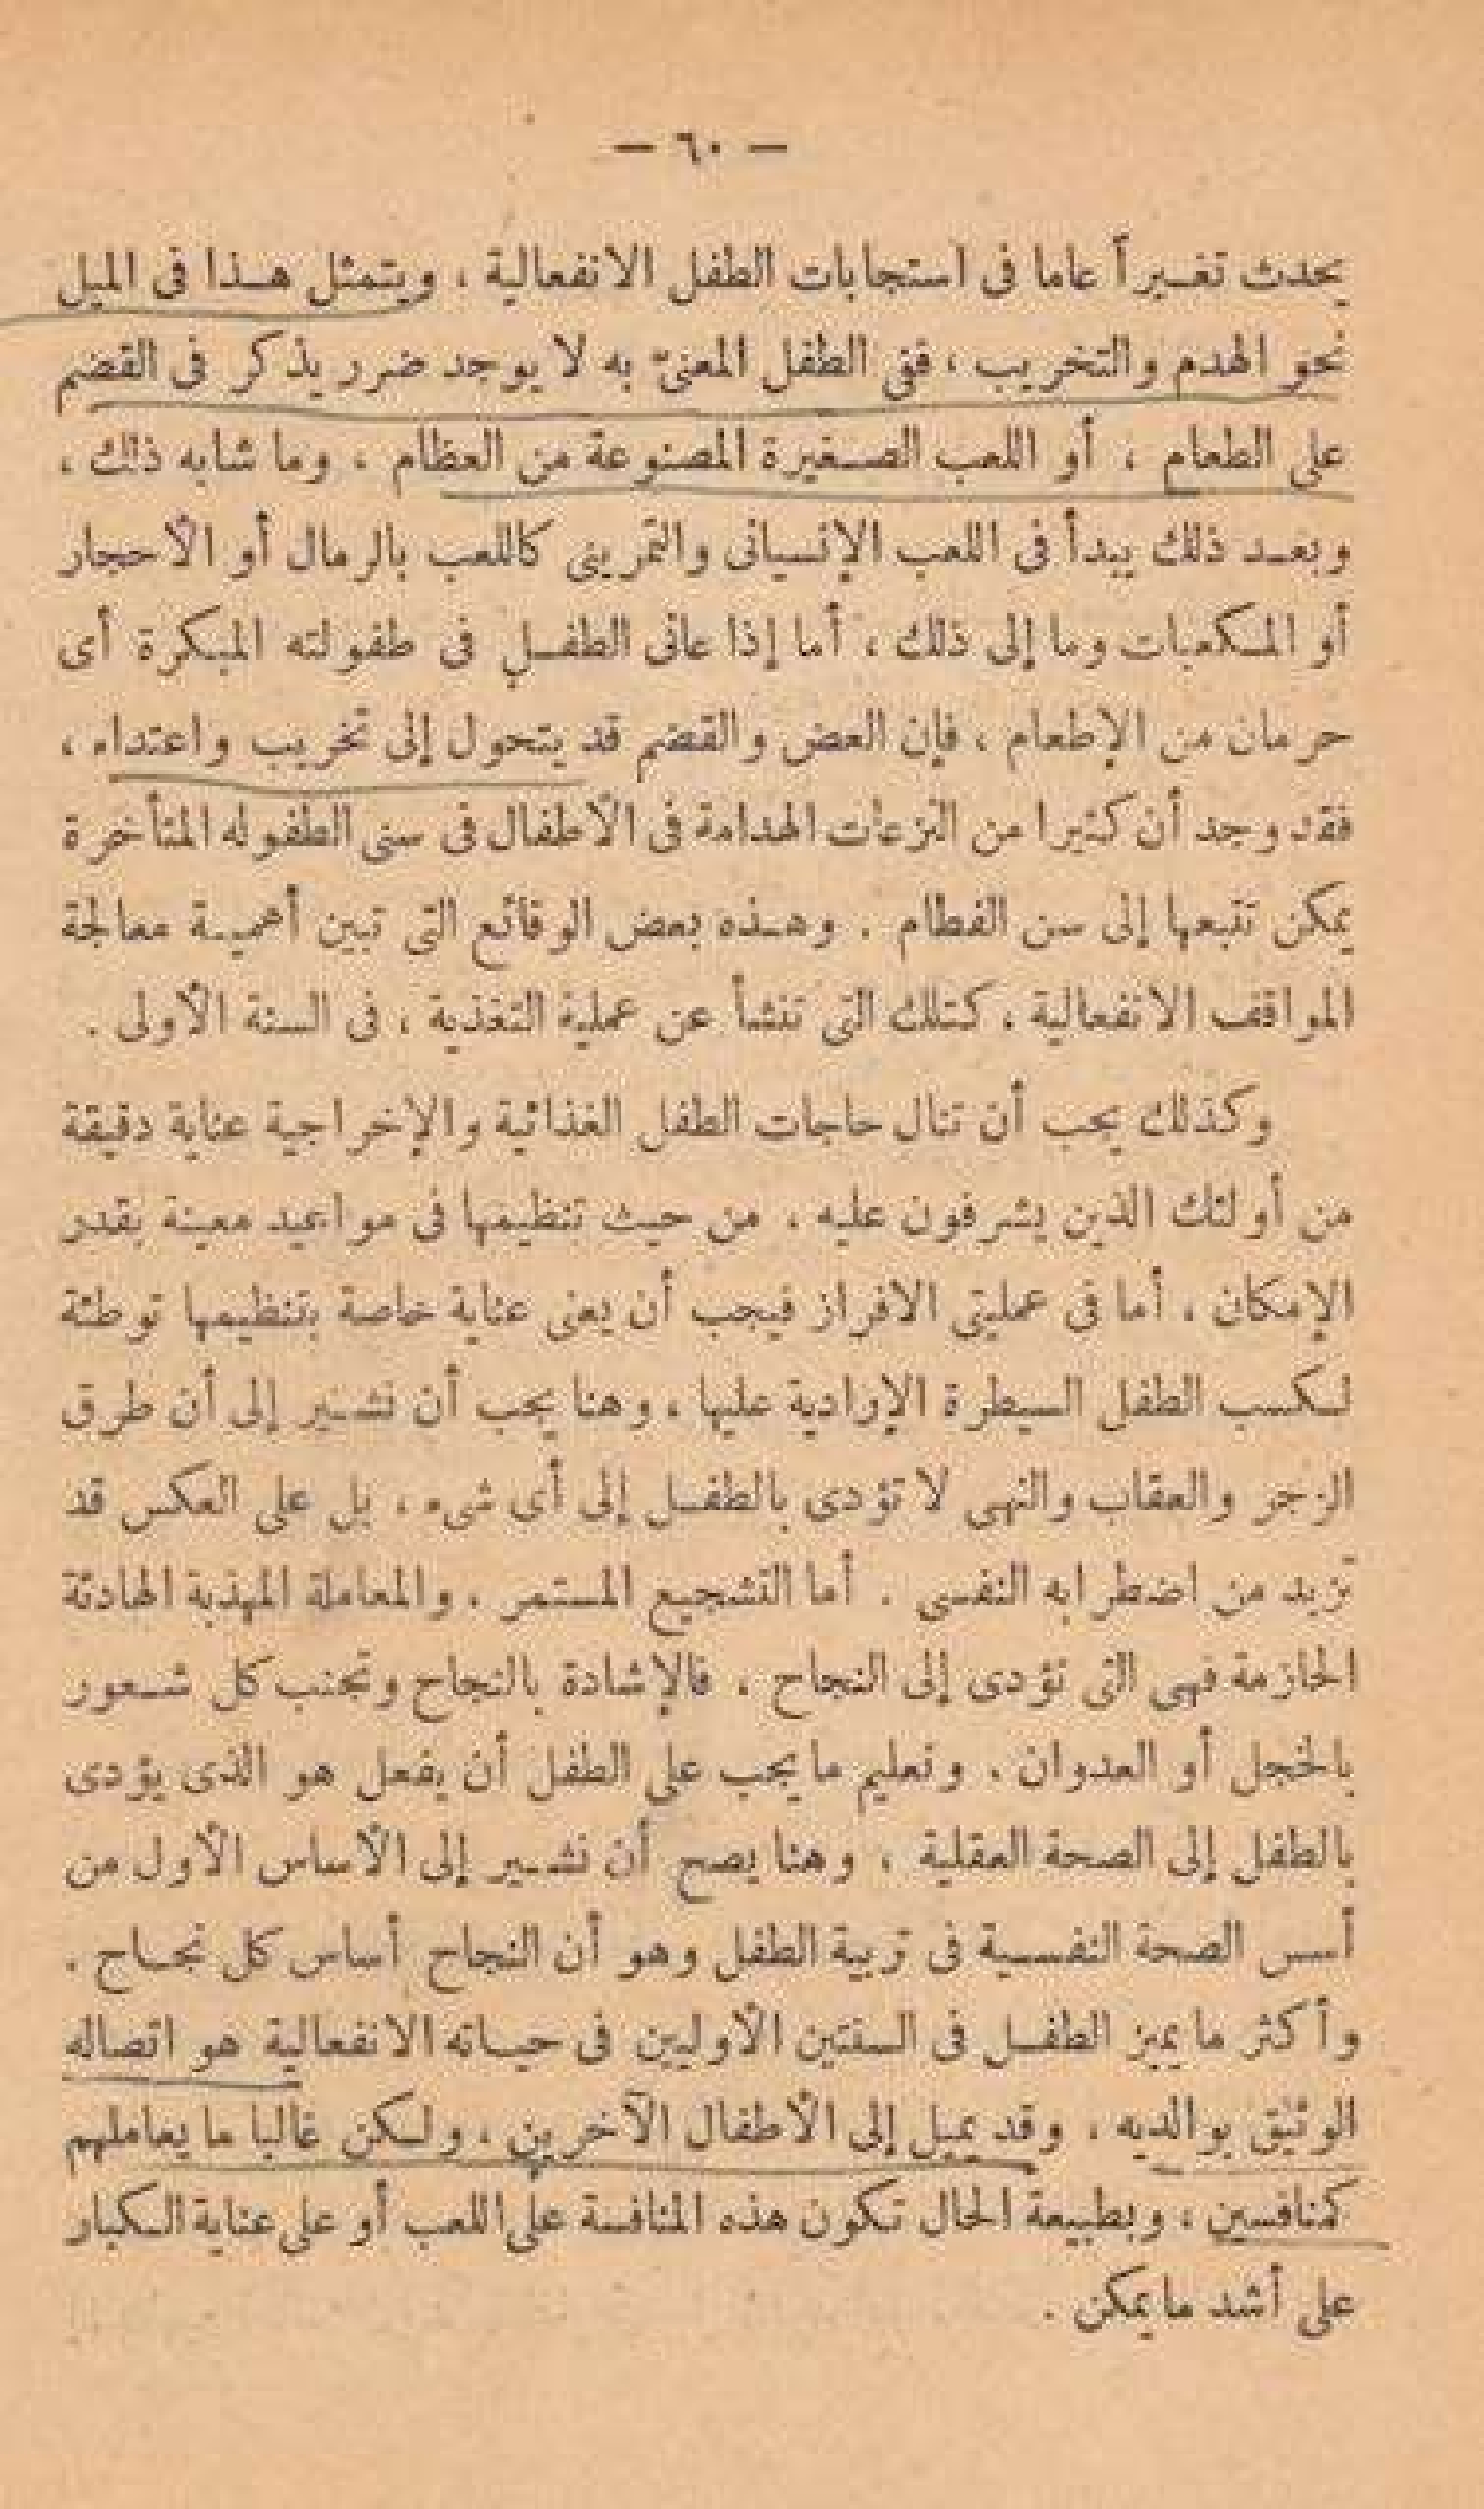 — ٦٠ —
يحدث تغييراً عاما فى استجابات الطفل الانفعالية ، ويتمثل هذا فى الميل
نحو الهدم والتخريب ، ففى الطفل المعنىّ به لا يوجد ضرر يذكر فى القضم
على الطعام ، أو اللعب الصغيرة المصنوعة من العظام ، وما شابه ذلك ،
وبعد ذلك يبدأ فى اللعب الإنسيانى والتمرينى كاللعب بالرمال أو الأحجار
أو المكعبات وما إلى ذلك ، أما إذا عانى الطفل فى طفولته المبكرة أى
حرمان من الإطعام ، فإن العض والقضم قد يتحول إلى تخريب واعتداء ،
فقد وجد أن كثيرا من النزعات الهدامة فى الأطفال فى سنى الطفوله المتأخرة
يمكن تتبعها إلى سن الفطام . وهذه بعض الوقائع التى تبين أهمية معالجة
المواقف الانفعالية ، كتلك التى تنشأ عن عملية التغذية ، فى السنة الأولى .
وكذلك يجب أن تنال حاجات الطفل الغذائية والإخراجية عناية دقيقة
من أولئك الذين يشرفون عليه ، من حيث تنظيمها فى مواعيد معينة بقدر
الإمكان ، أما فى عمليتى الافراز فيجب أن يعنى عناية خاصة بتنظيمها توطئة
لكسب الطفل السيطرة الإرادية عليها ، وهنا يجب أن نشير إلى أن طرق
الزجر والعقاب والنهى لا تؤدى بالطفل إلى أى شىء ، بل على العكس قد
تزيد من اضطرابه النفسى . أما التشجيع المستمر ، والمعاملة المهذبة الهادئة
الحازمة فهى التى تؤدى إلى النجاح ، فالإشادة بالنجاح وتجنب كل شعور
بالخجل أو العدوان ، وتعليم ما يجب على الطفل أن يفعل هو الذى يؤدى
بالطفل إلى الصحة العقلية ، وهنا يصح أن نشير إلى الأساس الأول من
أسس الصحة النفسية فى تربية الطفل وهو أن النجاح أساس كل نجاح .
وأكثر ما يميز الطفل فى السنتين الأوليين فى حياته الانفعالية هو اتصاله
الوثيق بوالديه ، وقد يميل إلى الأطفال الآخرين ، ولكن غالبا ما يعاملهم
كمنافسين ، وبطبيعة الحال تكون هذه المنافسة على اللعب أو على عناية الكبار
على أشد ما يمكن .